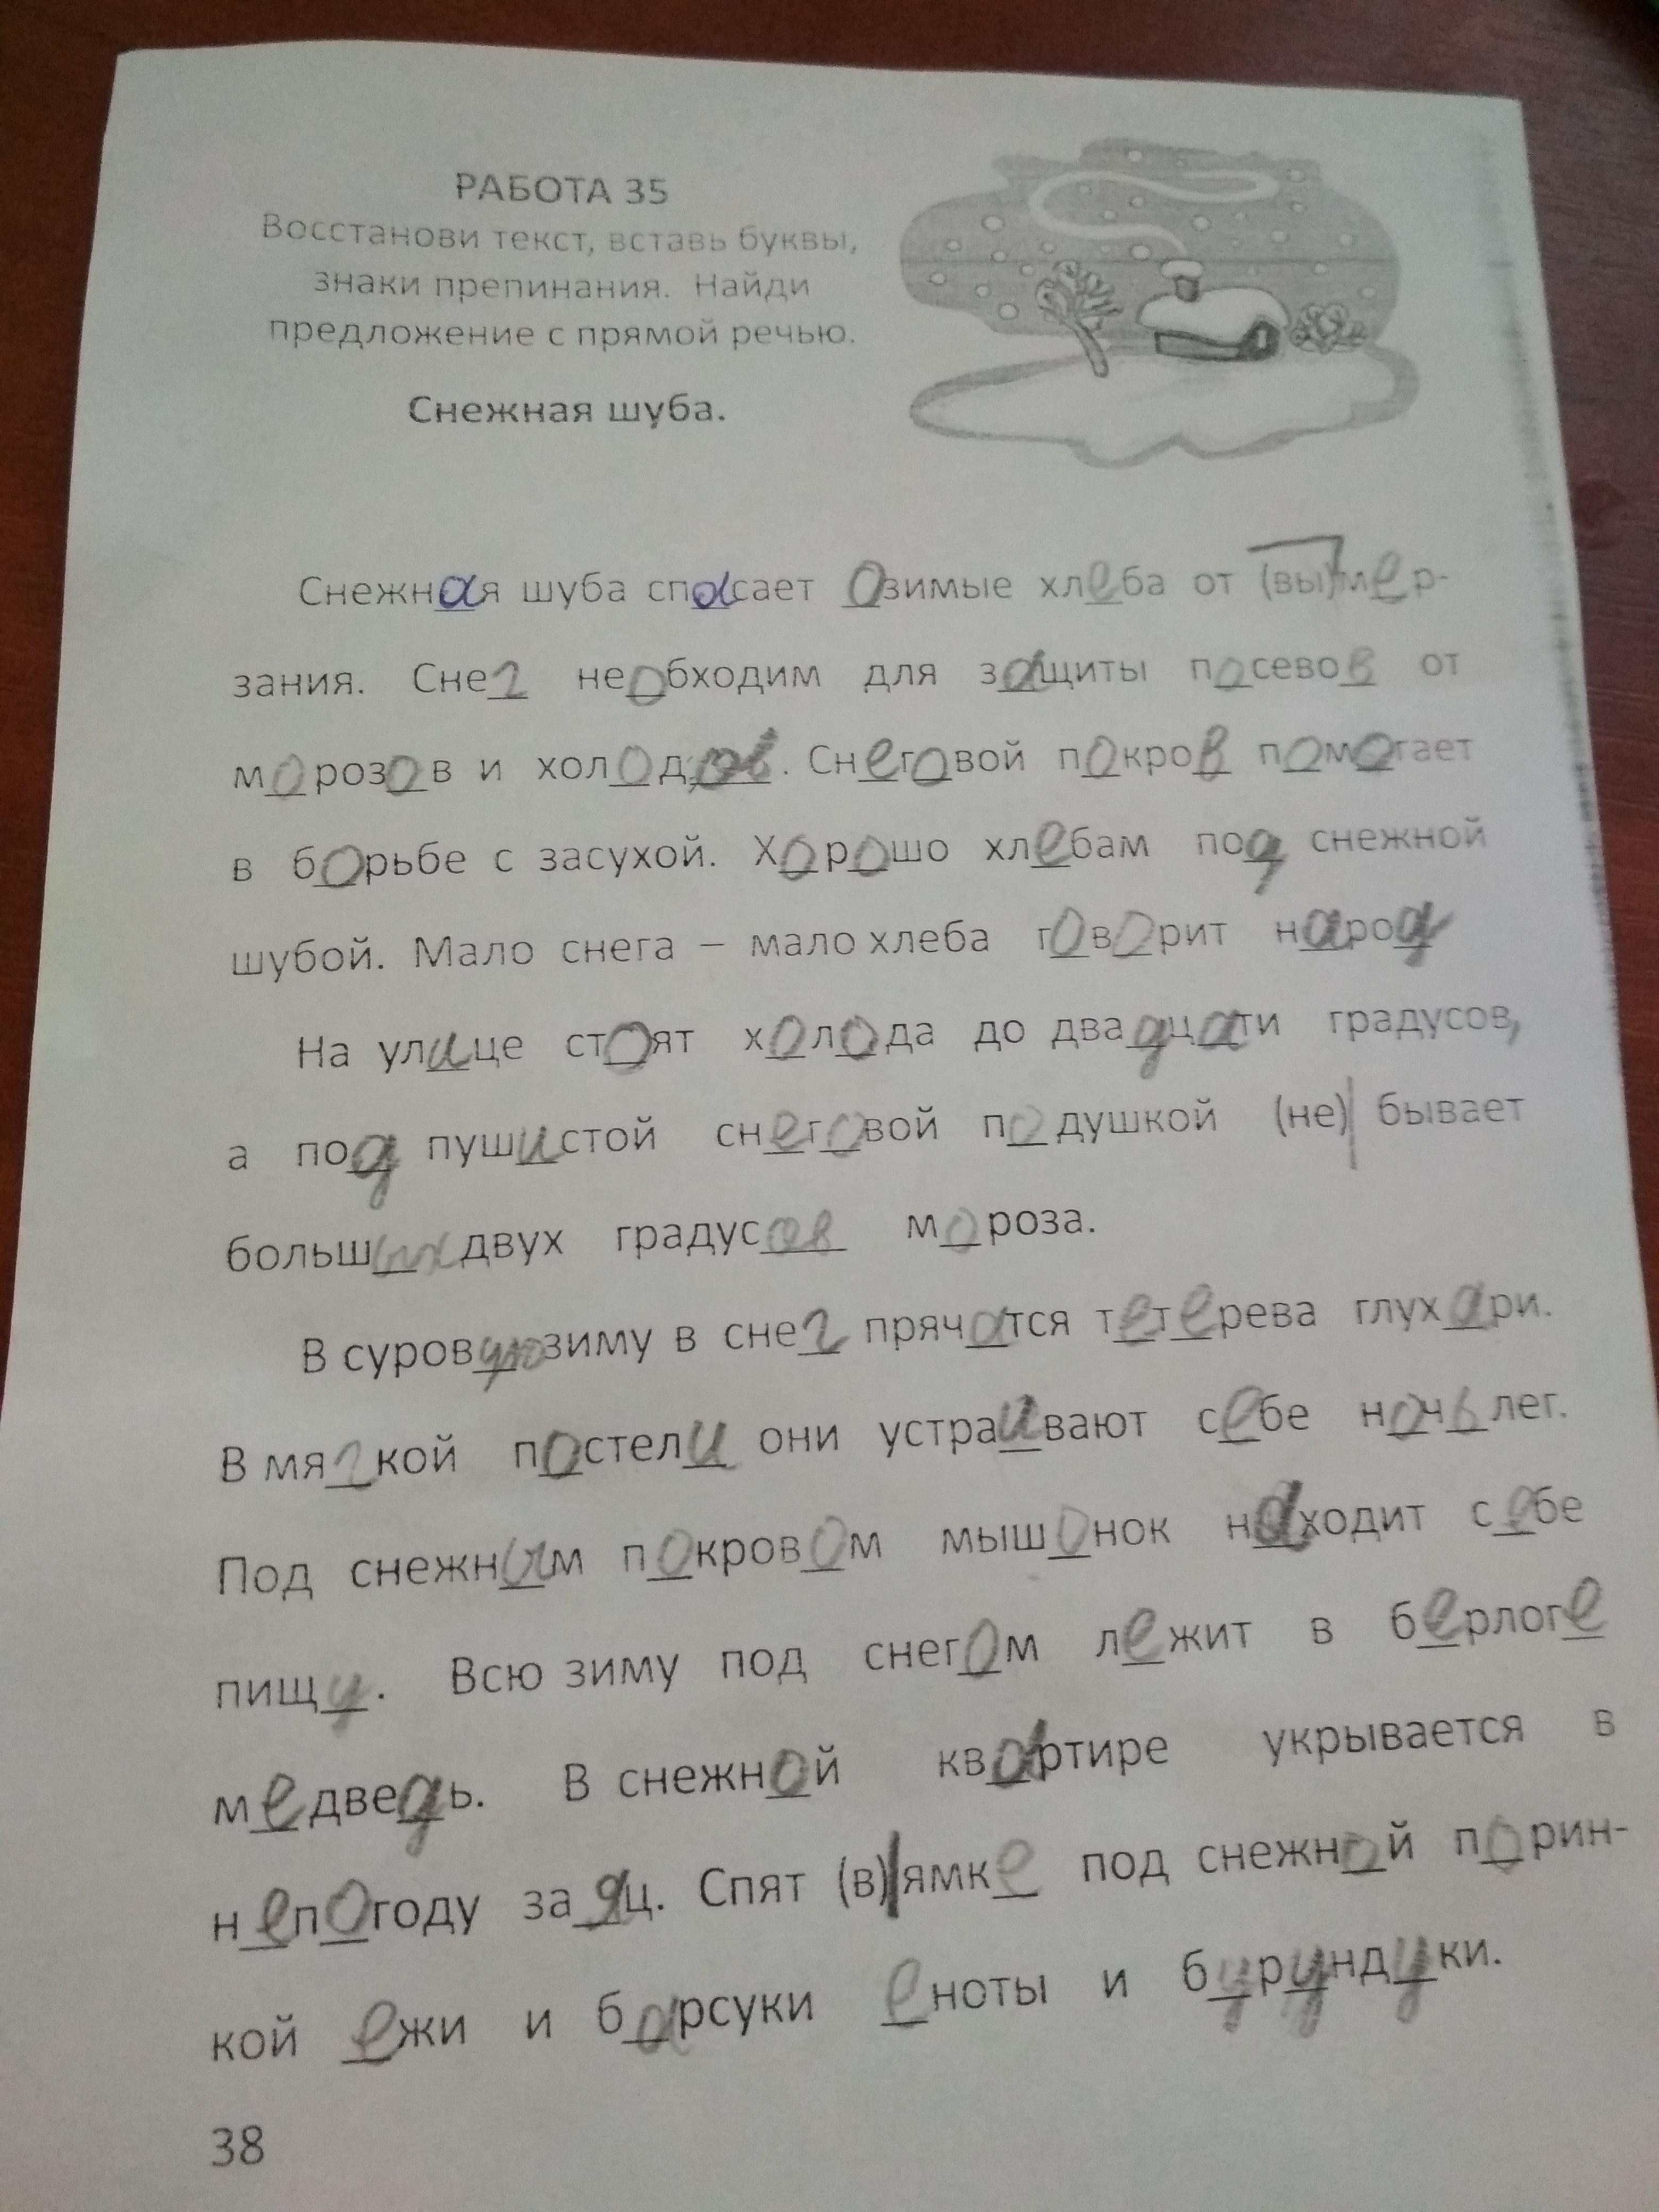 РАБОТА 35
Восстанови текст, вставь буквы,
знаки препинания. Найди
предложение с прямой речью.
Снежная шуба.
Снежная шуба спасает озимые хлеба от (вы)мер-
зания. Снег необходим для защиты посевов от
морозов и холодов. Снеговой покров помогает
в борьбе с засухой. Хорошо хлебам под снежной
шубой. Мало снега – мало хлеба говорит народ
На улице стоят холода до двадцати градусов,
а под пушистой снеговой подушкой (не) бывает
больших двух градусов мороза.
В суровую зиму в снег прячатся тетерева глухари.
В мягкой постели они устраивают себе ночьлег.
Под снежным покровом мышонок находит себе
пищу. Всю зиму под снегом лежит в берлоге
медведь. В снежной квартире укрывается в
непогоду заяц. Спят (в) ямке под снежной порин-
кой ежи и барсуки еноты и бурундуки.
38